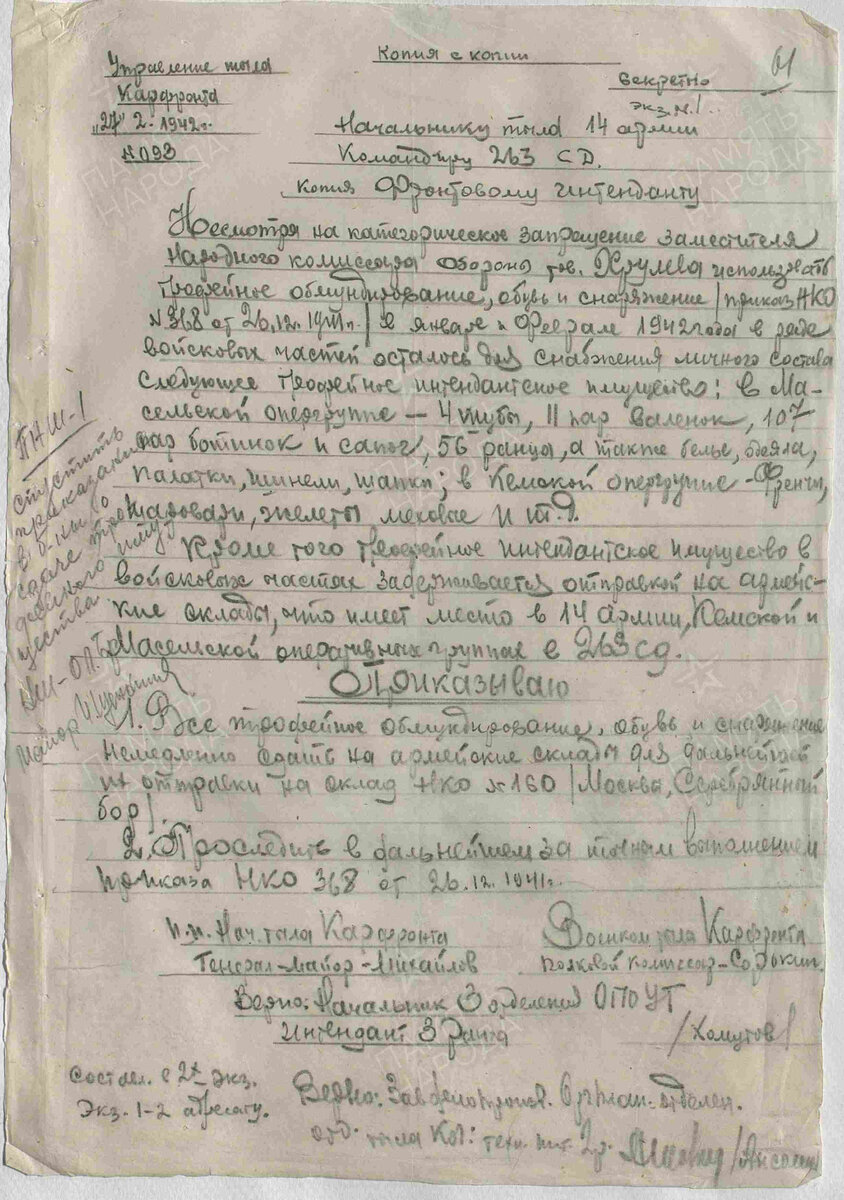 Копия с копии
61
Управление тыла
Карфронта
"27" 2. 1942г.
№ 093
секретно
экз. № 1.
Начальнику тыла 14 армии
Командиру 263 СД.
Копия Фронтовому интенданту
Несмотря на категорическое запрещение заместителя
Народного комиссара Обороны тов. Хрулева использовать
трофейное обмундирование, обувь и снаряжение /приказ НКО
№ 368 от 26.12. 1941г./ в январе и феврале 1942 года в ряде
войсковых частей осталось для снабжения личного состава
следующее трофейное интендантское имущество: в Ма-
сельской опергруппе — 4 шубы, 11 пар валенок, 107
пар ботинок и сапог, 56 ранцы, а также белье, одеяла,
палатки, шинели, шапки; в Кемской опергруппе - Френчи,
шаровари, жилеты меховые и т.д.
Кроме того трофейное интендантское имущество в
войсковых частях задерживается отправкой на армейс-
кие склады, что имеет место в 14 армии, Кемской и
Масельской оперативных группах и 263 сд.
Приказываю
1. Все трофейное обмундирование, обувь и снаряжение
немедленно сдать на армейские склады для дальнейшей
их отправки на склад НКО № 160 /Москва, Серебрянный
бор/.
2. Проследить в дальнейшем за точным выполнением
приказа НКО 368 от 26.12.1941г.
п.п. Нач. тыла Карфронта
Генерал-майор - Михайлов
Военком тыла Карфронта
полковой комиссар - Сорокин.
Верно: Начальник 3 отделения ОПО УТ
Интендант 3 ранга
/Хомутов/
Состав. в 2х экз.
Экз. 1-2 адресату.
Верно: Зав делопроизв. отделен.
отд. тыла техн. инт. 2 р.
ПНШ-1
спустить
приказание
в б-ны о
сдаче тро-
фейного иму
щества
майор
ПАМЯТЬ
НАРОДА